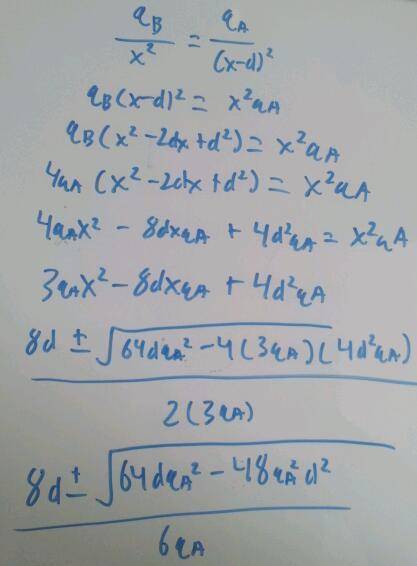 q_B/x² = q_A/(x-d)²
q_B(x-d)² = x²q_A
q_B(x²-2dx+d²) = x²q_A
4q_A(x²-2dx+d²) = x²q_A
4q_Ax² - 8dxq_A + 4d²q_A = x²q_A
3q_Ax² - 8dxq_A + 4d²q_A
(8d ± √(64dq_A² - 4(3q_A)(4d²q_A)))/(2(3q_A))
(8d ± √(64dq_A² - 48q_A²d²))/(6q_A)